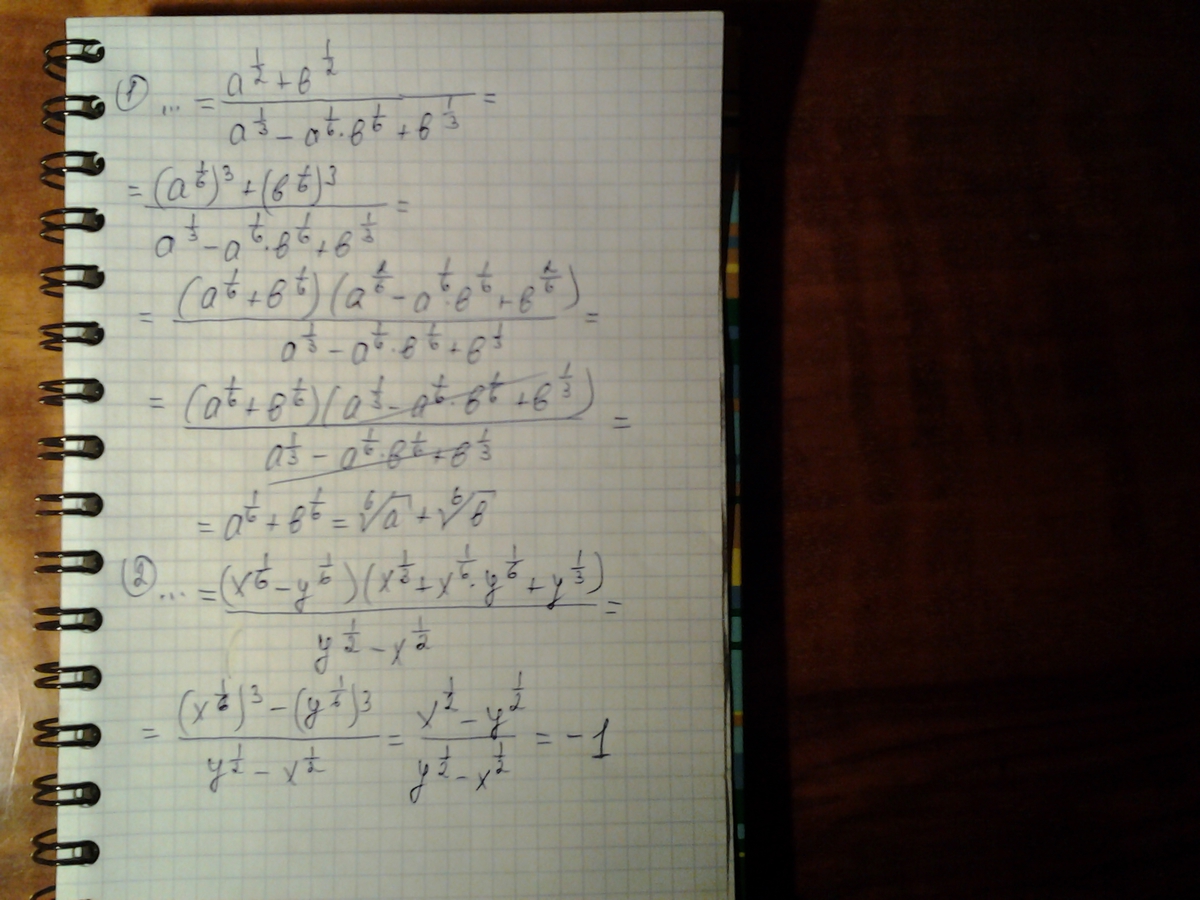 ① ... = (a^(1/2) + в^(1/2)) / (a^(1/3) − a^(1/6) · в^(1/6) + в^(1/3)) =
= ((a^(1/6))^3 + (в^(1/6))^3) / (a^(1/3) − a^(1/6) · в^(1/6) + в^(1/3)) =
= ((a^(1/6) + в^(1/6)) (a^(2/6) − a^(1/6) · в^(1/6) + в^(2/6))) / (a^(1/3) − a^(1/6) · в^(1/6) + в^(1/3)) =
= ((a^(1/6) + в^(1/6)) (a^(1/3) − a^(1/6) · в^(1/6) + в^(1/3))) / (a^(1/3) − a^(1/6) · в^(1/6) + в^(1/3)) =
= a^(1/6) + в^(1/6) = ⁶√a + ⁶√в
② ... = ((x^(1/6) − y^(1/6)) (x^(1/3) + x^(1/6) · y^(1/6) + y^(1/3))) / (y^(1/2) − x^(1/2)) =
= ((x^(1/6))^3 − (y^(1/6))^3) / (y^(1/2) − x^(1/2)) = (x^(1/2) − y^(1/2)) / (y^(1/2) − x^(1/2)) = −1